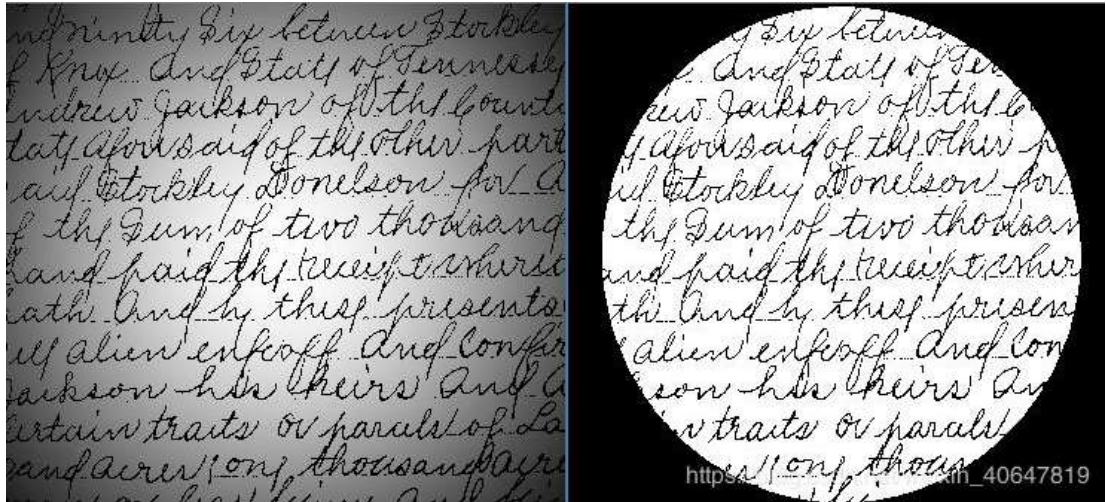 nd ninety Six between Stockley
f Knox And State of Tennessee
ndrew Jackson of the Count
tate aforesaid of the other part
aid Stockley Donelson for A
f the Sum of two thousand
hand paid the receipt where
ath And by these presents
ell alien enfeoff And Confir
Jackson his heirs And A
ertain traits or parcels of La
sand acres one thousand acre
y Six between
And State of Ten
rew Jackson of the Co
aforesaid of the other p
id Stockley Donelson for
the Sum of two thousan
and paid the receipt wher
th And by these presen
alien enfeoff And Con
kson his heirs An
in traits or parcels
es one thousan
https
_40647819